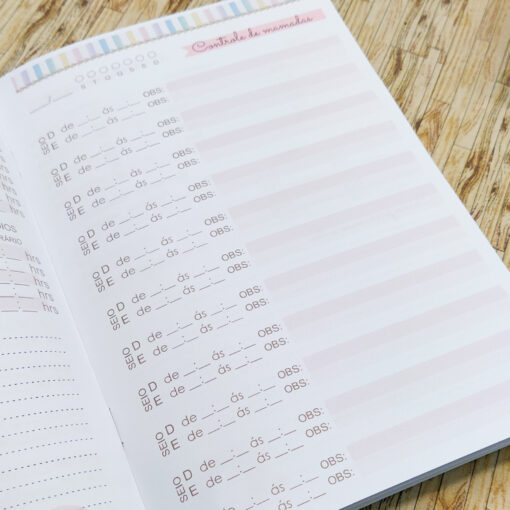 Controle de mamadas
__/__
D S T Q Q S S
SEIO
D de __:__ ás __:__ OBS:
E de __:__ ás __:__ OBS:
SEIO
D de __:__ ás __:__ OBS:
E de __:__ ás __:__ OBS:
SEIO
D de __:__ ás __:__ OBS:
E de __:__ ás __:__ OBS:
SEIO
D de __:__ ás __:__ OBS:
E de __:__ ás __:__ OBS:
SEIO
D de __:__ ás __:__ OBS:
E de __:__ ás __:__ OBS:
SEIO
D de __:__ ás __:__ OBS:
E de __:__ ás __:__ OBS:
SEIO
D de __:__ ás __:__ OBS:
E de __:__ ás __:__ OBS:
SEIO
D de __:__ ás __:__ OBS:
E de __:__ ás __:__ OBS:
SEIO
D de __:__ ás __:__ OBS:
E de __:__ ás __:__ OBS:
hrs
hrs
hrs
hrs